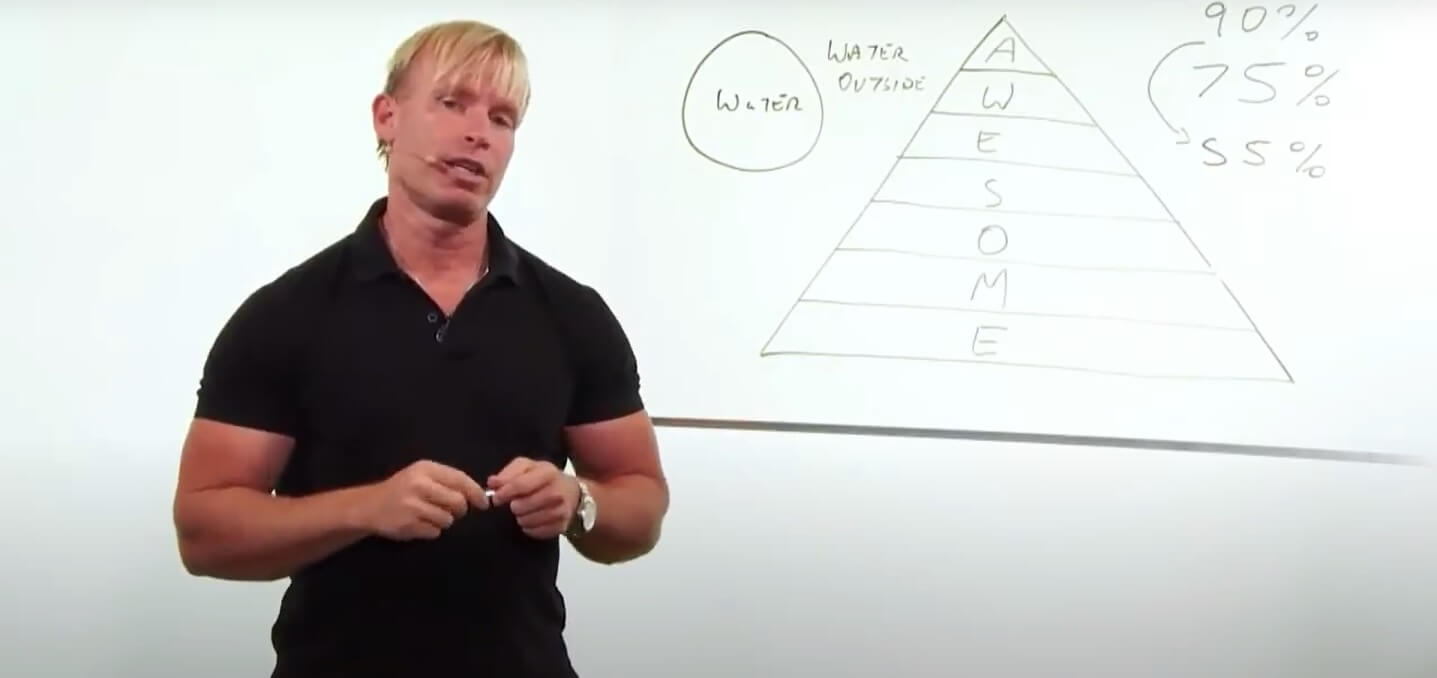 WATER
WATER
OUTSIDE
A
W
E
S
O
M
E
90%
75%
55%